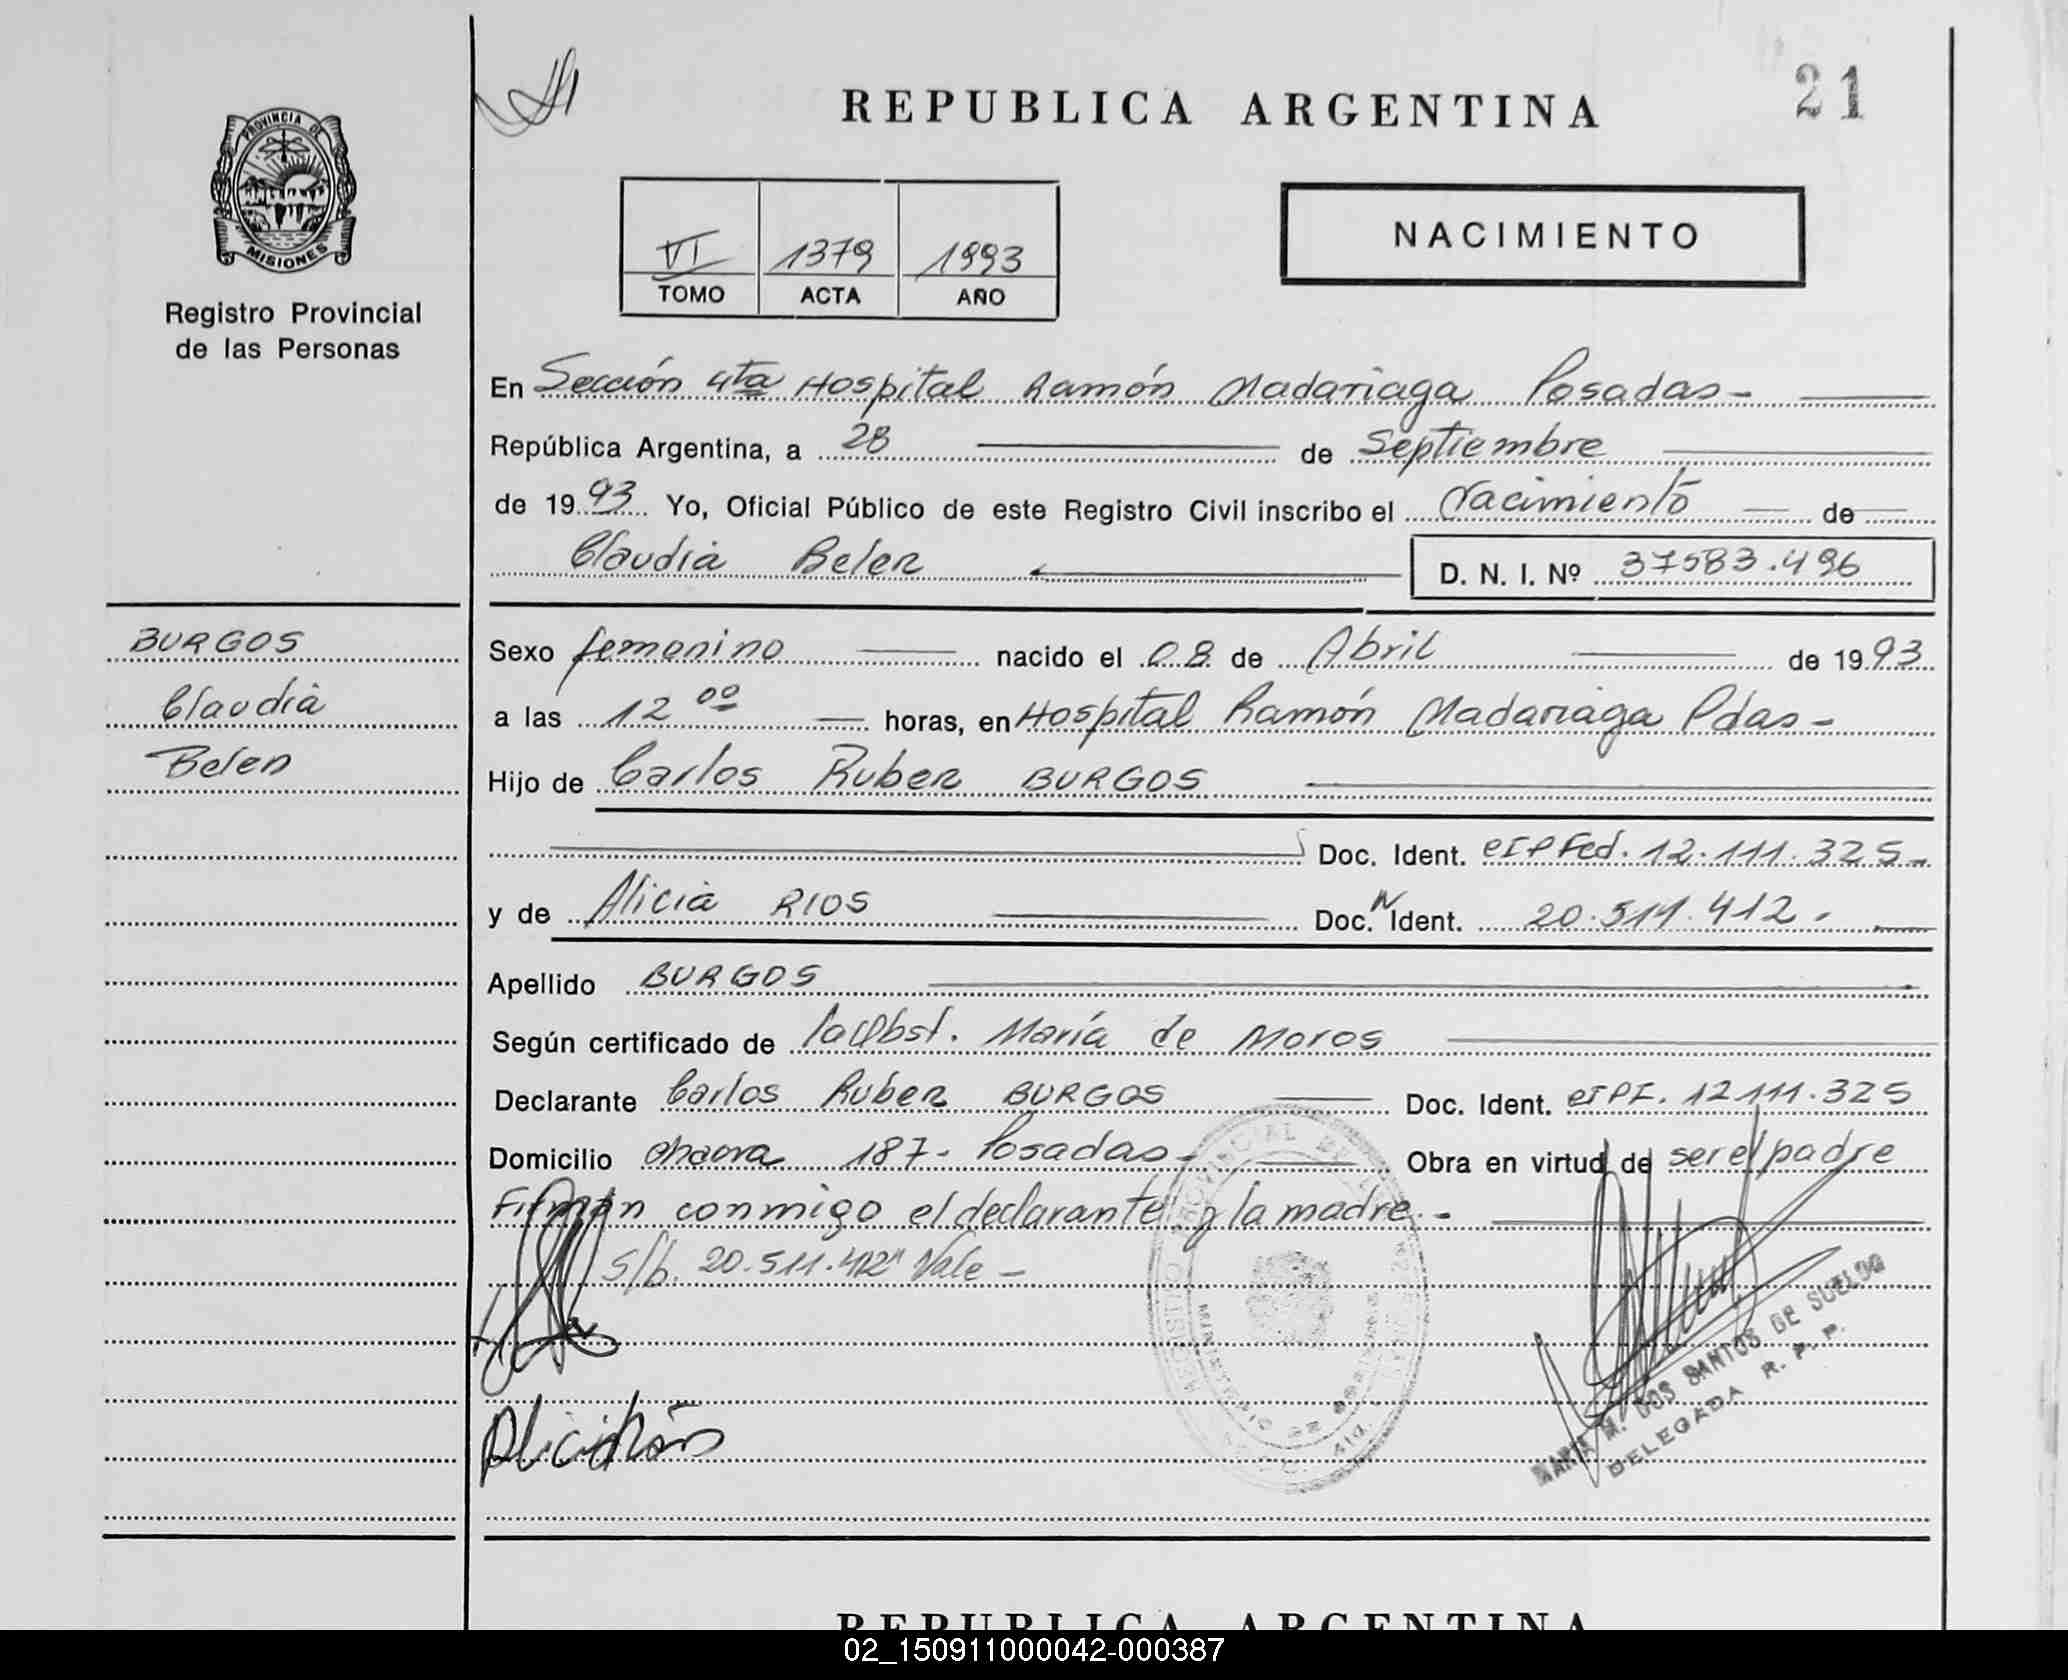 REPUBLICA ARGENTINA
21
PROVINCIA DE
MISIONES
Registro Provincial
de las Personas
VI 1379 1993
TOMO ACTA AÑO
NACIMIENTO
En Sección 4ta Hospital Ramón Madariaga Posadas-
República Argentina, a 28 de Septiembre
de 1993 Yo, Oficial Público de este Registro Civil inscribo el Nacimiento de
Claudia Belen D. N. I. Nº 37583.496
BURGOS
Claudia
Belen
Sexo femenino nacido el 08 de Abril de 1993
a las 12 00 horas, en Hospital Ramón Madariaga Pdas-
Hijo de Carlos Ruben BURGOS
Doc. Ident. CIPFed. 12.111.325-
y de Alicia RIOS Doc. N Ident. 20.511.412.
Apellido BURGOS
Según certificado de la Obst. María de Moros
Declarante Carlos Ruben BURGOS Doc. Ident. CIPF. 12.111.325
Domicilio chacra 187- Posadas- Obra en virtud de ser el padre
Firman conmigo el declarante y la madre.-
S/b. 20.511.412" Vale-
REGISTRO PROVINCIAL DE LAS
MINISTERIO DE
Alicia Ríos
MARIA M. DOS SANTOS DE SUELDO
DELEGADA R. P. P.
REPUBLICA ARGENTINA
02_150911000042-000387